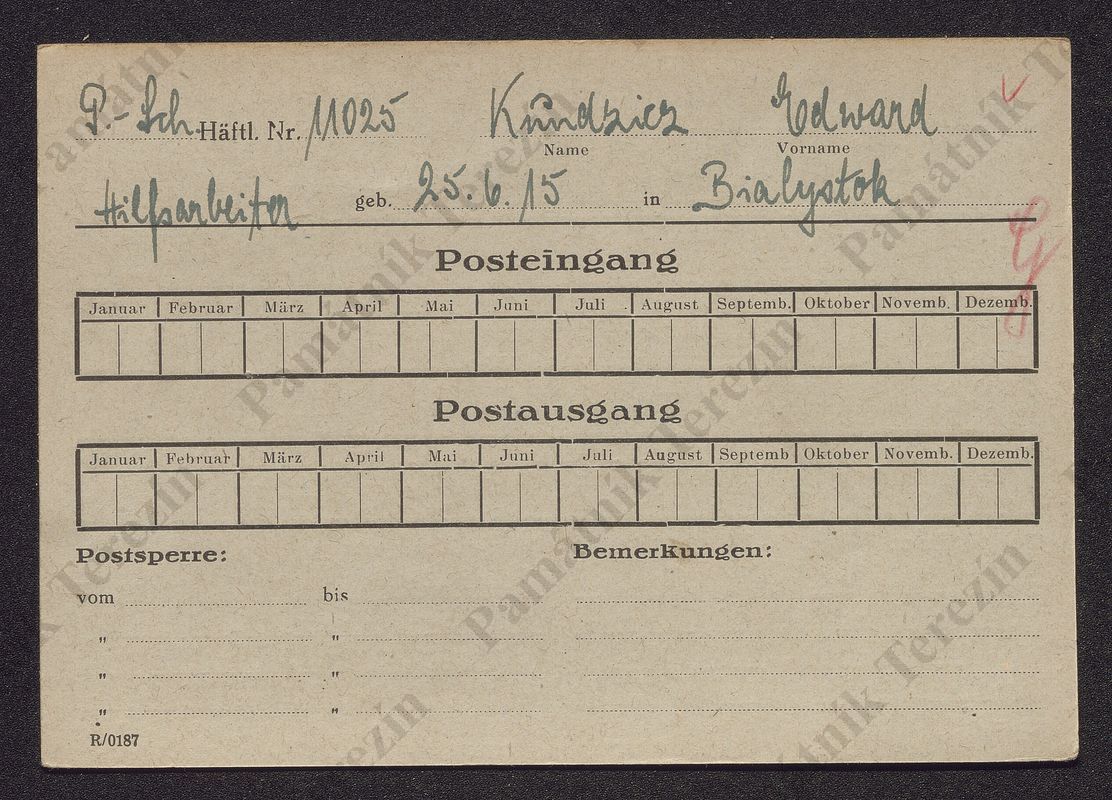 P.-Sch. Häftl. Nr. 11025 Kundzicz Edward
Name Vorname
Hilfsarbeiter geb. 25.6.15 in Bialystok
Posteingang
Januar Februar März April Mai Juni Juli August Septemb. Oktober Novemb. Dezemb.
Postausgang
Januar Februar März April Mai Juni Juli August Septemb Oktober Novemb. Dezemb.
Postsperre: Bemerkungen:
vom bis
" "
" "
" "
R/0187
Památník Terezín